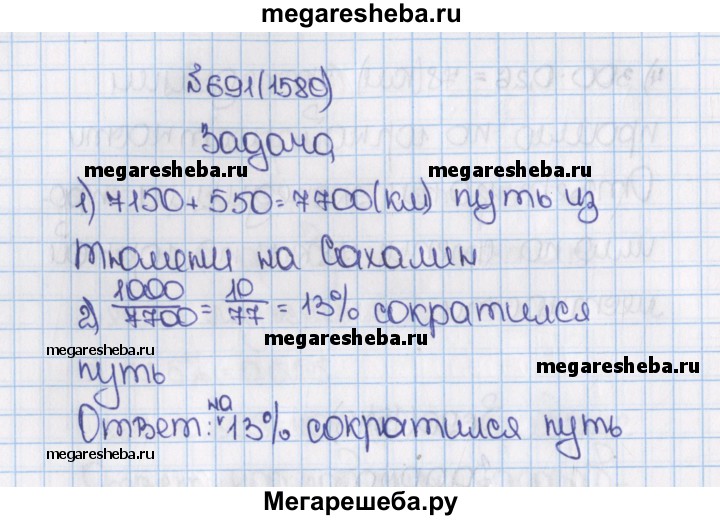 megaresheba.ru
№691(1580)
Задача
megaresheba.ru megaresheba.ru
1) 7150+550=7700(км) путь из
Тюмени на Сахалин
2) 1000/7700 = 10/77 = 13% сократился
megaresheba.ru
путь
megaresheba.ru
на
Ответ: 13% сократился путь
megaresheba.ru
Мегарешеба.ру